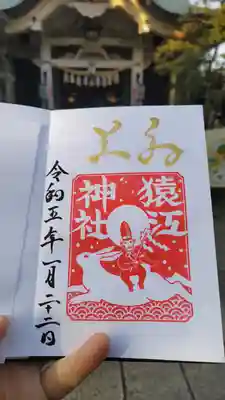 上乃
猿江
神社
令和五年一月二十二日